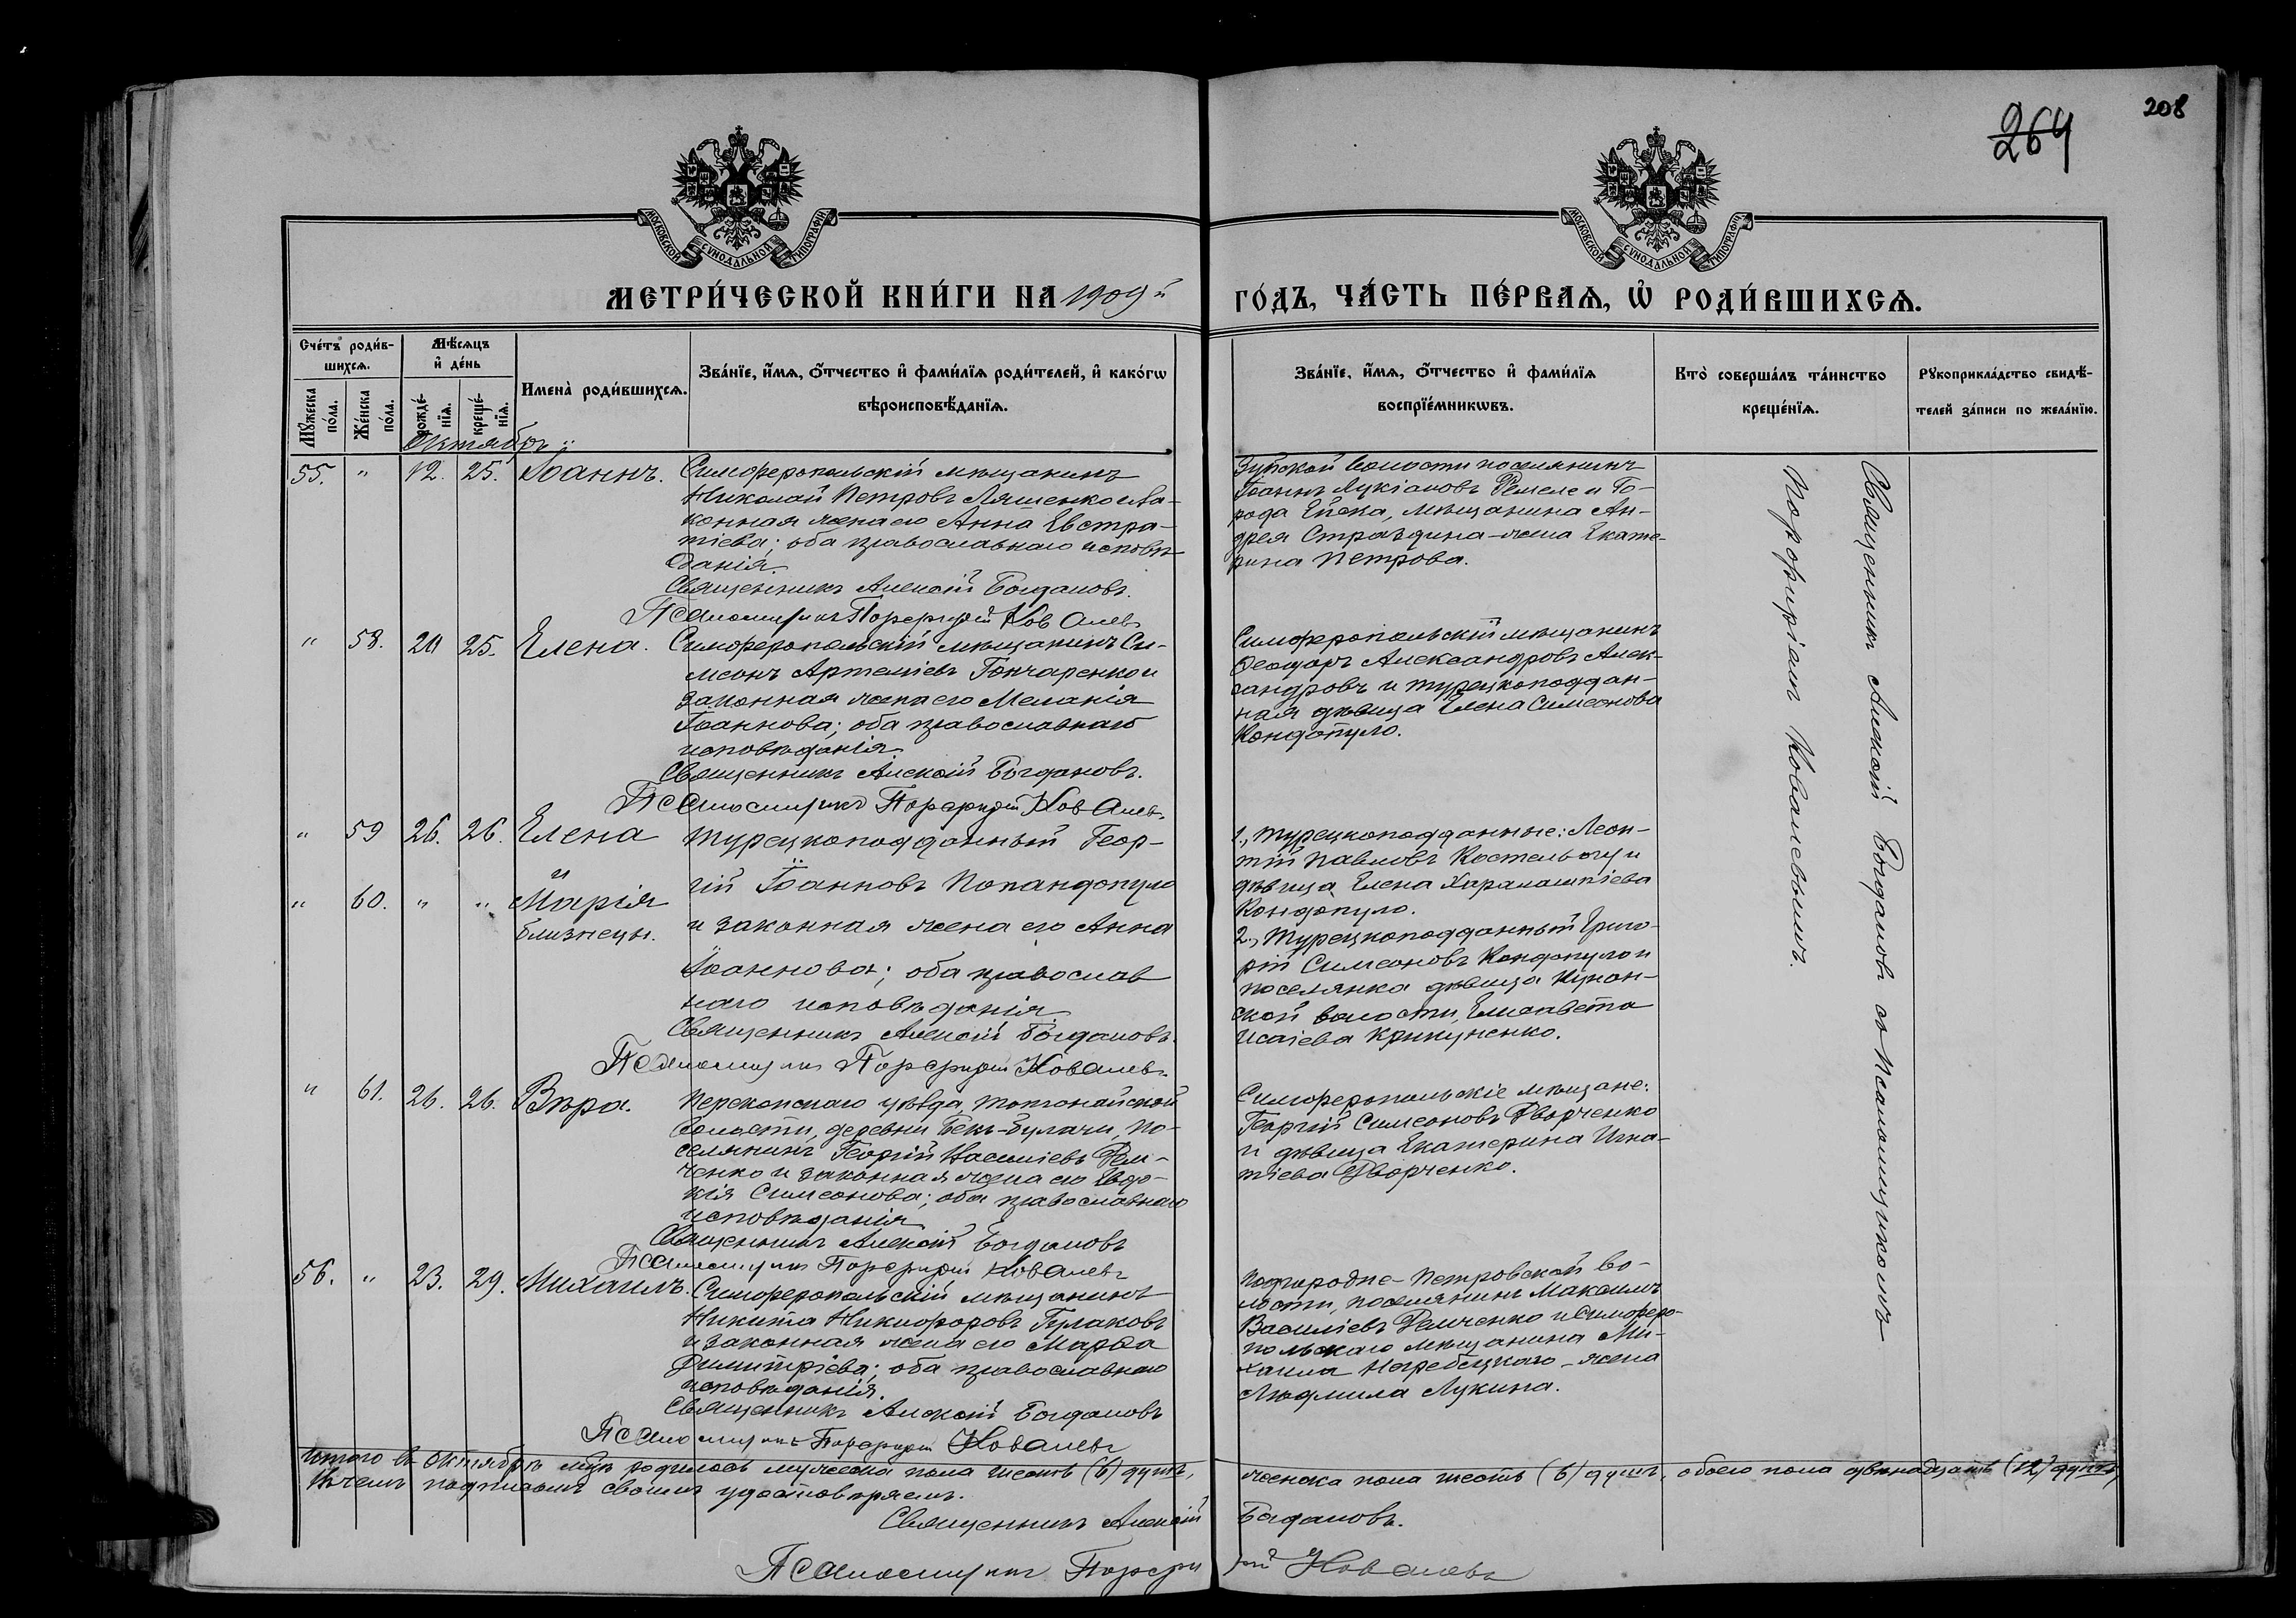 264
208
МОСКОВСКОЙ СѴНОДАЛЬНОЙ ТИПОГРАФІИ
МОСКОВСКОЙ СѴНОДАЛЬНОЙ ТИПОГРАФІИ
МЕТРИ́ЧЕСКОЙ КНИ́ГИ НА 1909й
ГО́ДЪ, ЧА́СТЬ ПЕ́РВАѦ, Ѽ РОДИ́ВШИХСѦ.
Сче́тъ роди́в-
шихсѧ.
Мѣ́сѧцъ
и҆ де́нь
Мꙋ́жеска по́ла.
Же́нска по́ла.
рожде́-нїѧ.
креще́-нїѧ.
Имена̀ роди́вшихсѧ.
Зва́нїе, и҆́мѧ, ѻ҆́тчество и҆ фами́лїѧ роди́телей, и҆ како́гѡ
вѣроисповѣ́данїѧ.
Зва́нїе, и҆́мѧ, ѻ҆́тчество и҆ фами́лїѧ
воспрїе́мникѡвъ.
Кто̀ соверша́лъ та́инство
креще́нїѧ.
Рꙋкоприкла́дство свидѣ́-
телей за́писи по жела́нїю.
Октябрь
55. " 12. 25. Іоаннъ.
Симферопольскій мѣщанинъ
Николай Петровъ Ляшенко и за-
конная жена его Анна Евстра-
тіева; оба православнаго исповѣ-
данія.
Священникъ Алексій Богдановъ.
Псаломщикъ Порфирій Ковалевъ
Зуйской волости поселянинъ
Іоаннъ Лукіановъ Ремеле и Го-
рода Ейска, мѣщанина Ан-
дрея Страздина-жена Екате-
рина Петрова.
" 58. 20 25. Елена.
Симферопольскій мѣщанинъ Си-
меонъ Артеміевъ Гончаренко и
законная жена его Меланія
Іоаннова; оба православнаго
исповѣданія
Священникъ Алексій Богдановъ.
Псаломщикъ Порфирій Ковалевъ
Симферопольскій мѣщанинъ
Ѳеодоръ Александровъ Алек-
сандровъ и турецкоподдан-
ная дѣвица Елена Симеонова
Кондопуло.
" 59 26. 26. Елена
и
" 60. " " Марія
близнецы.
Турецкоподданный Геор-
гій Іоанновъ Попандопуло
и законная жена его Анна
Іоаннова; оба православ
наго исповѣданія
Священникъ Алексій Богдановъ.
Псаломщикъ Порфирій Ковалевъ
1., Турецкоподданные: Леон-
тій Павловъ и
дѣвица Елена Харалампіева
Кондопуло.
2., Турецкоподданный Григо-
рій Симеоновъ Кондопуло и
поселянка дѣвица
ской волости, Елисавета
Исаіева Крикуненко.
" 61. 26. 26. Вѣра.
Перекопскаго уѣзда,
волости, деревни Бекъ-Булачи, по-
селянинъ Георгій Василіевъ Дем-
ченко и законная жена его Евдо-
кія Симеонова; оба православнаго
исповѣданія
Священникъ Алексій Богдановъ
Псаломщикъ Порфирій Ковалевъ
Симферопольскіе мѣщане:
Георгій Симеоновъ Дворченко
и дѣвица Екатерина Игна-
тіева Дворченко.
56. " 23. 29. Михаилъ.
Симферопольскій мѣщанинъ
Никита Никифоровъ Гулаковъ
и законная жена его Марѳа
Димитріева; оба православнаго
исповѣданія.
Священникъ Алексій Богдановъ
Псаломщикъ Порфирій Ковалевъ
Подгородне-Петровской во-
лости, поселянинъ Максимъ
Василіевъ Демченко и Симферо-
польскаго мѣщанина Ми-
хаила Негребецкаго-жена
Людмила Лукина.
Священникъ Алексій Богдановъ съ Псаломщикомъ
Порфиріемъ Ковалевымъ.
Итого въ Октябрѣ м-цѣ родилось мужеска пола шесть (6) душъ,
женска пола шесть (6) душъ, обоего пола двѣнадцать (12) душъ,
въ чемъ подписомъ своимъ удостовѣряемъ.
Священникъ Алексій Богдановъ.
Псаломщикъ Порфирій Ковалевъ